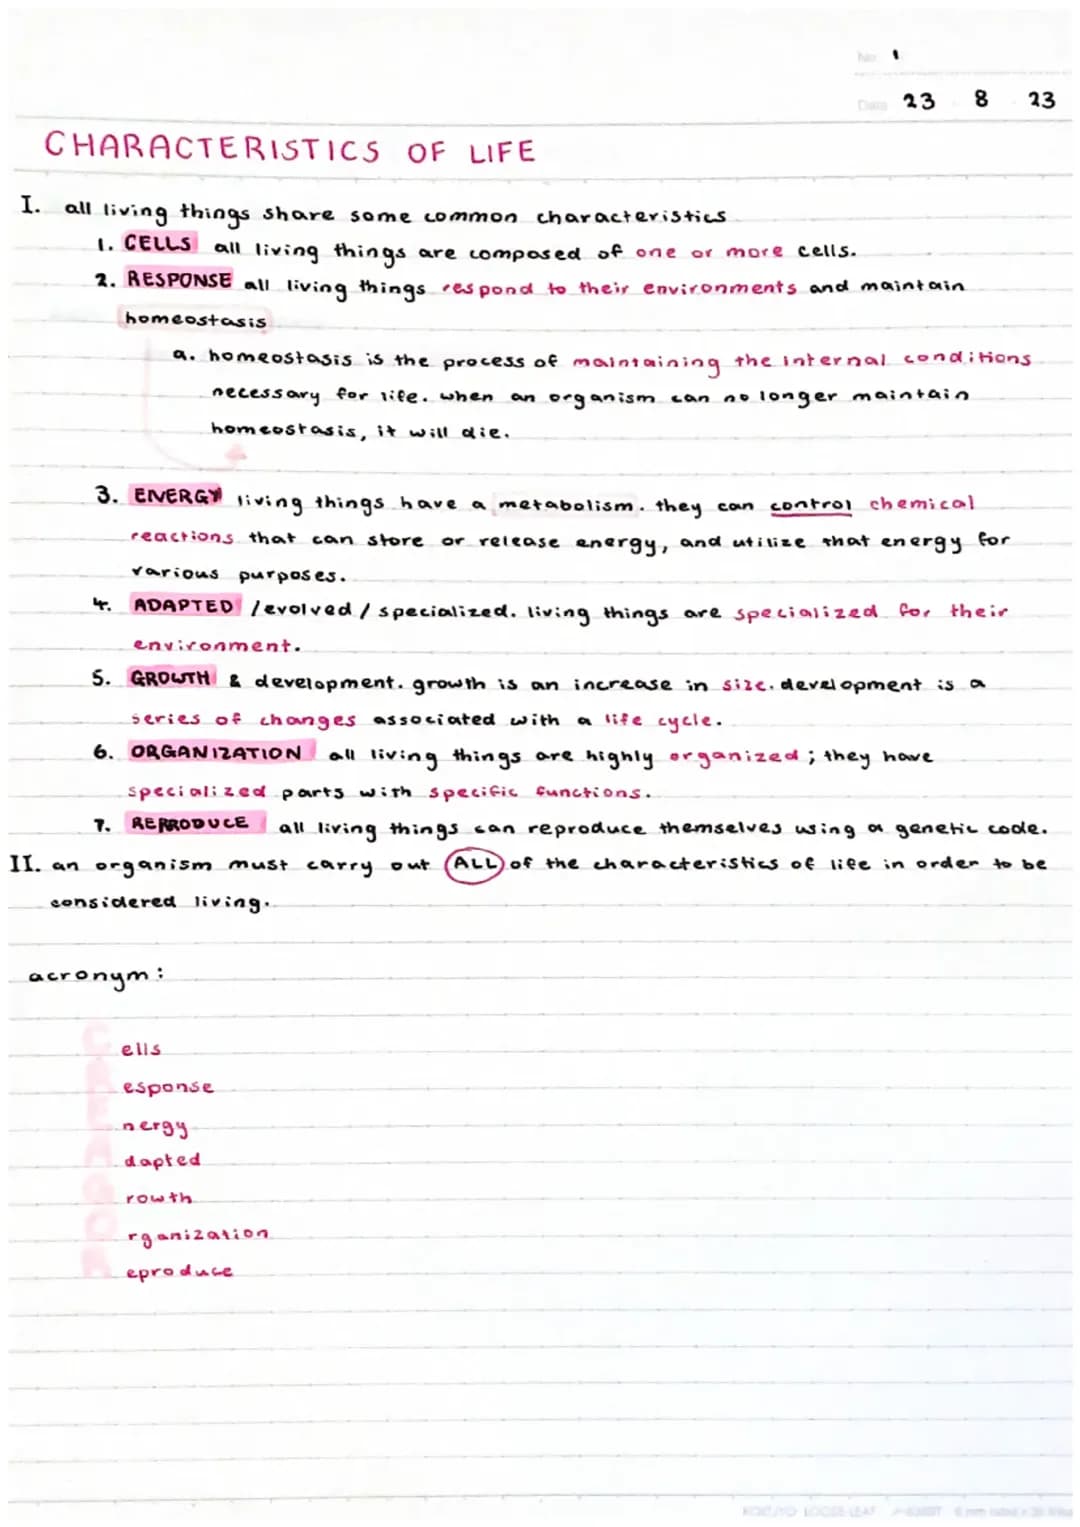 No. 1
Date 23 8 23
CHARACTERISTICS OF LIFE
I. all living things share some common characteristics
1. CELLS all living things are composed of one or more cells.
2. RESPONSE all living things respond to their environments and maintain
homeostasis
a. homeostasis is the process of maintaining the internal conditions
necessary for life. when an organism can no longer maintain
homeostasis, it will die.
3. ENERGY living things have a metabolism. they can control chemical
reactions that can store or release energy, and utilize that energy for
various purposes.
4. ADAPTED / evolved / specialized. living things are specialized for their
environment.
5. GROWTH & development. growth is an increase in size. development is a
series of changes associated with a life cycle.
6. ORGANIZATION all living things are highly organized; they have
specialized parts with specific functions.
7. REPRODUCE all living things can reproduce themselves using a genetic code.
II. an organism must carry out ALL of the characteristics of life in order to be
considered living.
acronym:
C ells
R esponse
E nergy
A dapted
G rowth
O rganization
R eproduce
KOKUYO LOOSE-LEAF